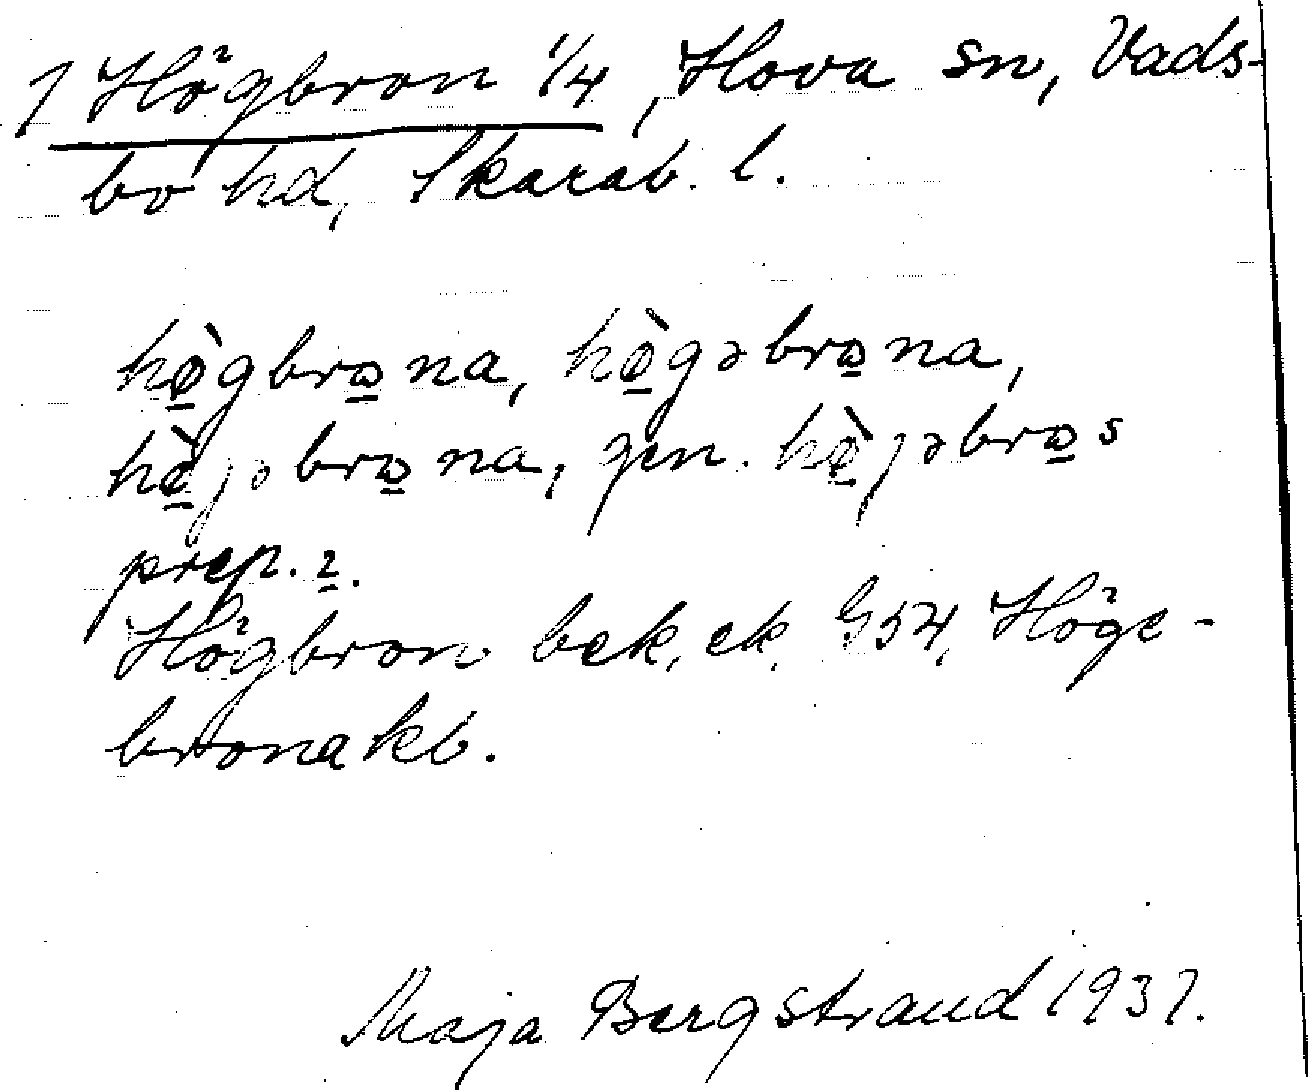 1 Högbron 1/4, Hova sn, Vads-
bo hd, Skarab. l.
hø̱̀gbrɷ̱na, hø̱̀gəbrɷ̱na,
hø̱̀jəbrɷ̱na, gen. hø̱̀jəbrɷ̱s
prep. ı̱.
Högbron bek, ek, G54, Höge-
bronakb.
Maja Bergstrand 1937.